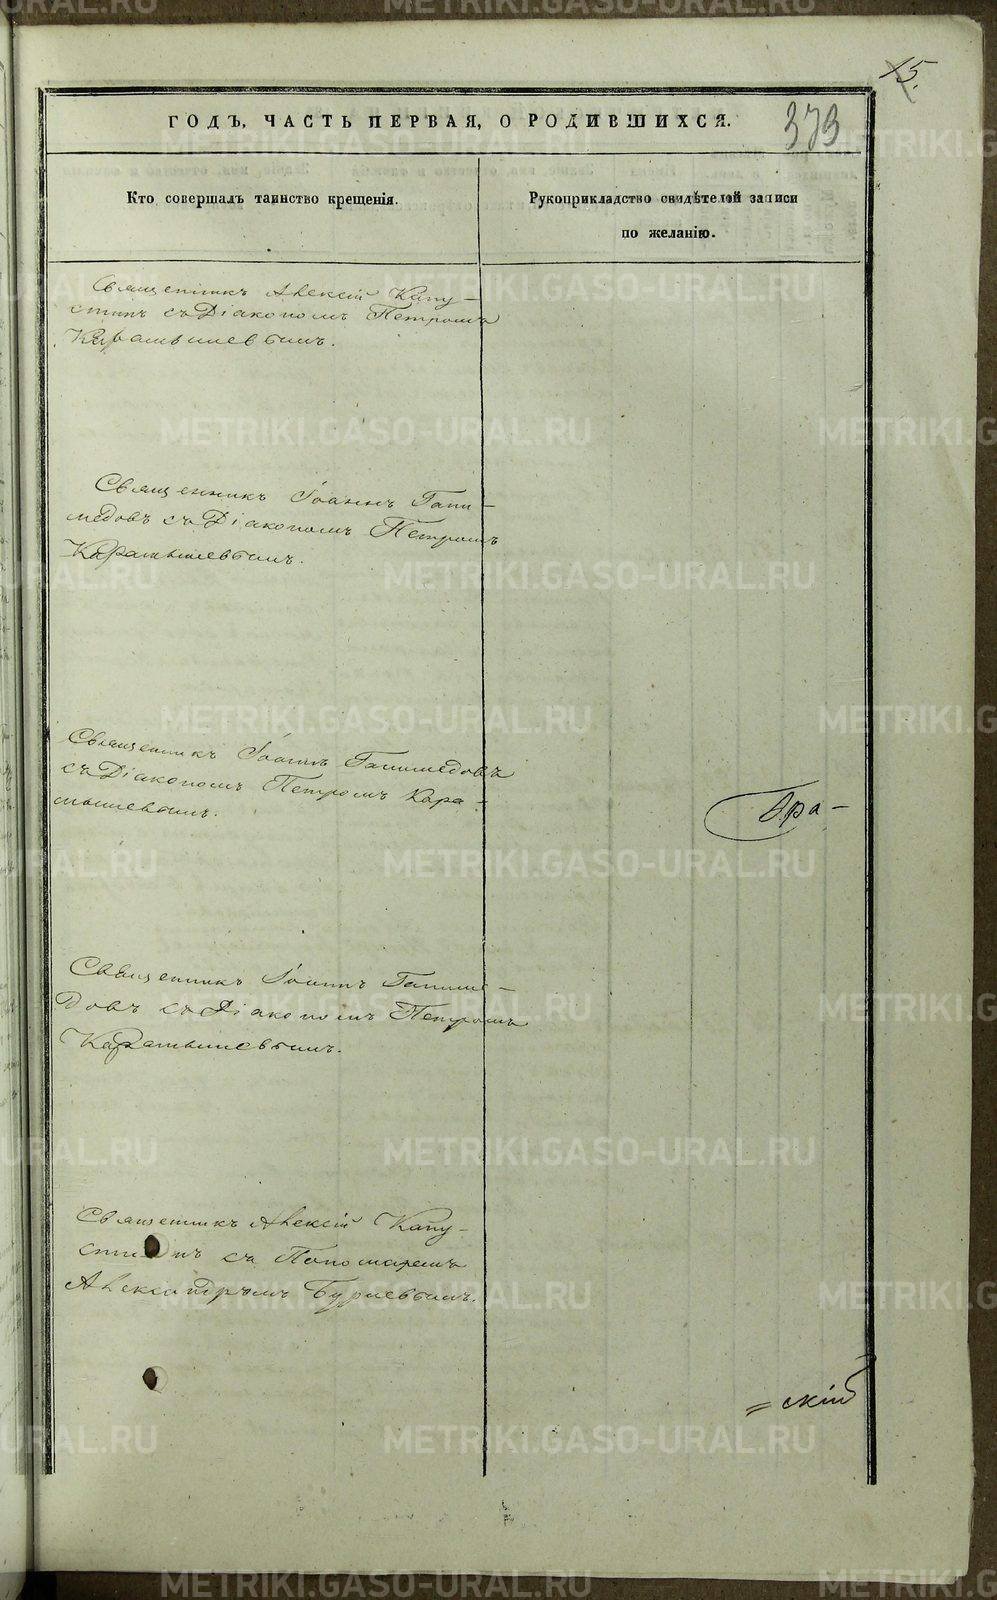 15.
373
ГОДЪ, ЧАСТЬ ПЕРВАЯ, О РОДИВШИХСЯ.
Кто совершалъ таинство крещенія.
Рукоприкладство свидѣтелей записи
по желанію.
Священникъ Алексій Капу-
стинъ съ Діакономъ Петромъ
Карамышевымъ.
Священникъ Іоаннъ Гани-
медовъ съ Діакономъ Петромъ
Карамышевымъ.
Священникъ Іоаннъ Ганимедовъ
съ Діакономъ Петромъ Кара-
мышевымъ.
Бра-
Священникъ Іоаннъ Ганиме-
довъ съ Діакономъ Петромъ
Карамышевымъ.
Священникъ Алексій Капу-
стинъ съ Пономаремъ
Александромъ
=скій
METRIKI.GASO-URAL.RU